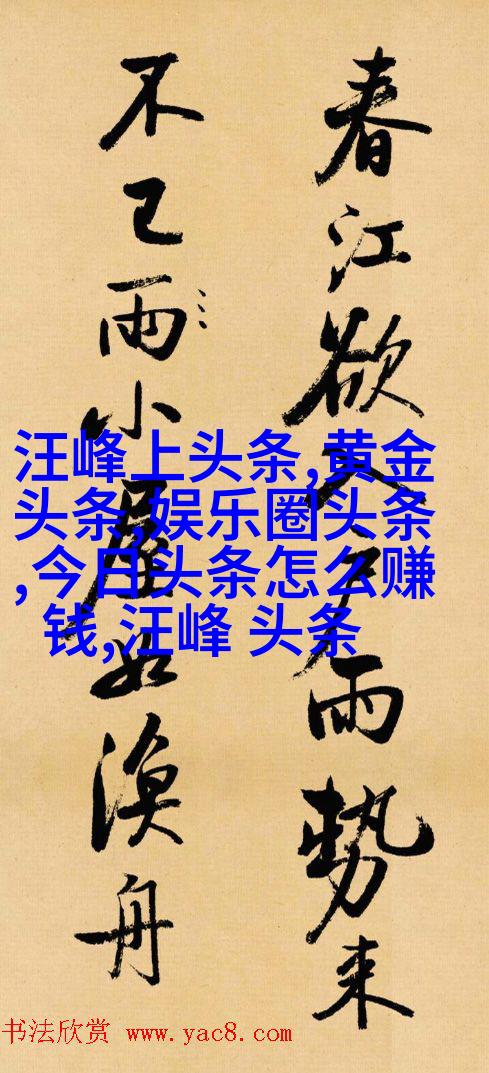 春江欲入戶雨勢来
不已雨小屋如漁舟
汪峰上头条,黄金
头条,娱乐圈头条
,今日头条怎么赚
钱,汪峰 头条
书法欣赏 www.yac8.com